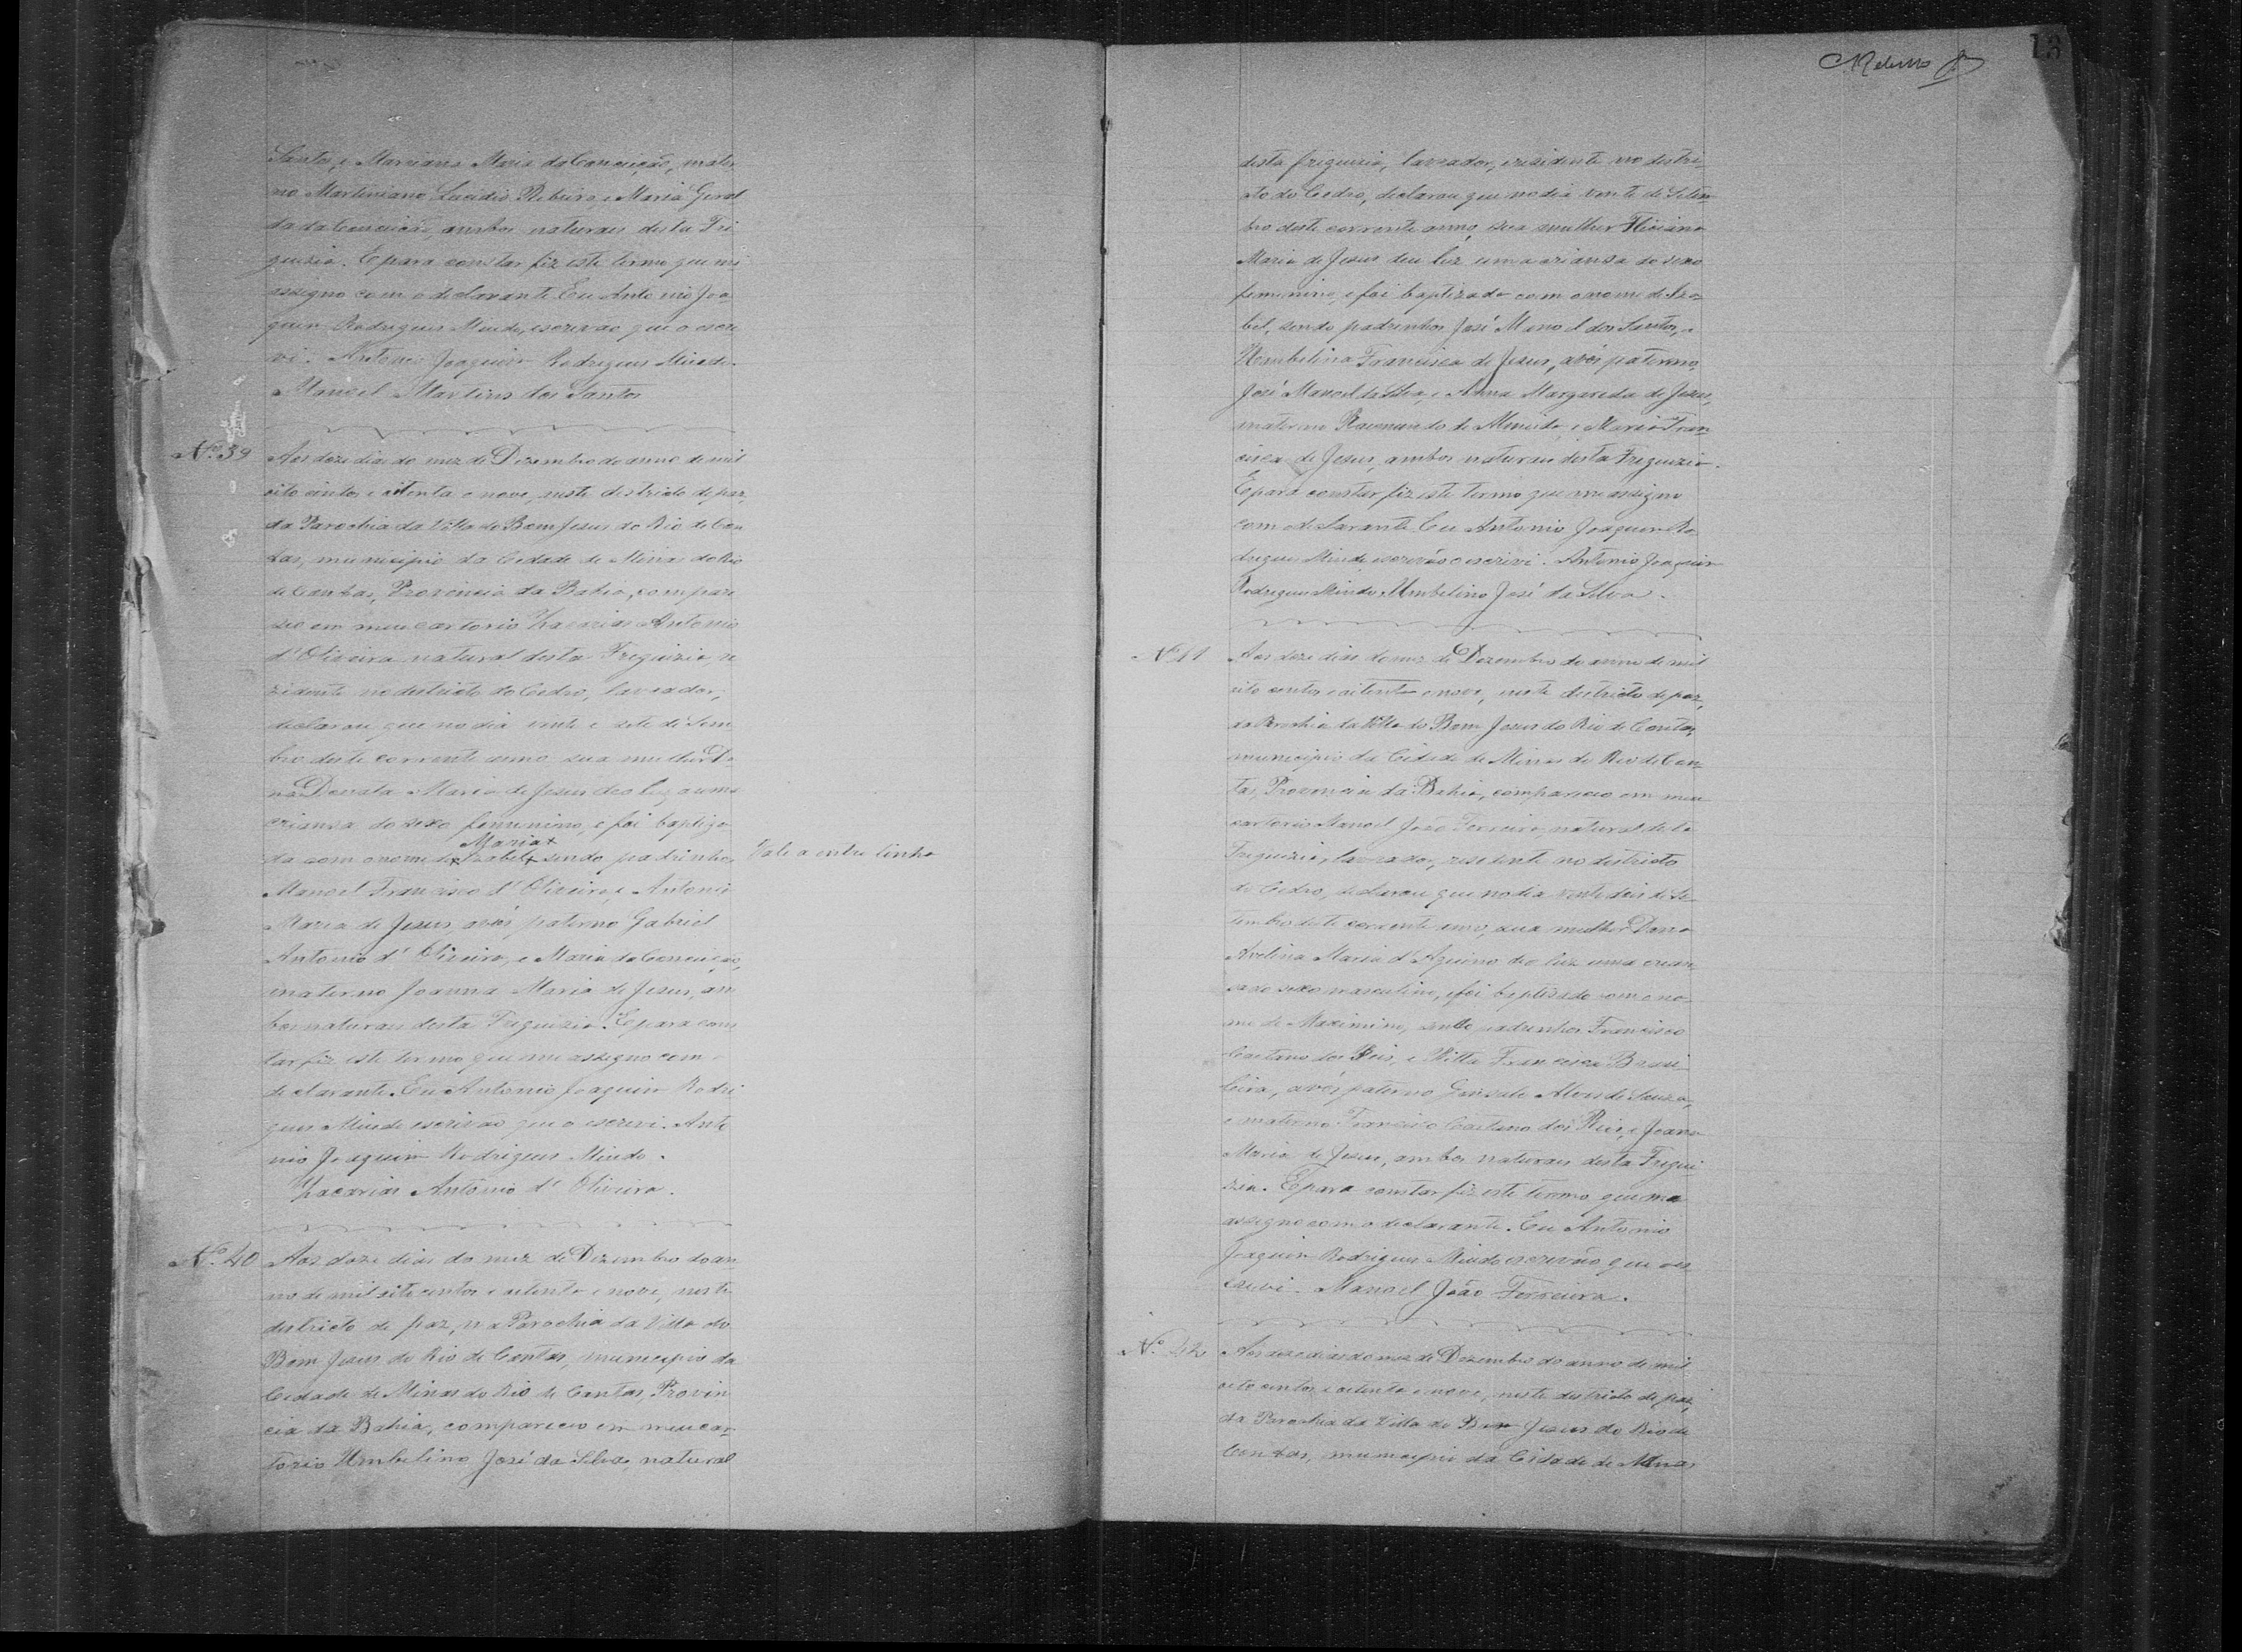 Santos, e Marciana Maria da Conceição, mater
no Martiniano Lucidio Ribeiro, e Maria Geral
da da Conceição, ambos naturais desta Fri
guizia. E para constar fiz este termo que mi
assigno com o declarante. Eu Antonio Joa
quim Rodrigues Miudo, escrivão que o escre
vi. Antonio Joaquim Rodrigues Miudo.
Manoel Martins dos Santos
Nº 39
Aos doze dias do mez de Dezembro do anno de mil
oito centos e oitenta e nove, neste destricto de paz,
da Parochia da Villa do Bom Jesus do Rio de Con
tas, municipio da Cidade de Minas do Rio
de Contas, Provincia da Bahia, compare
ceo em meu cartorio Zacarias Antonio
d'Oliveira natural desta Freguizia, re
zidente no destricto do Cedro, lavrador,
declarou que no dia vinte e sete de
bro deste corrente anno sua mulher Do
na Donata Maria de Jesus deo luz a uma
criansa do sexo feminino, e foi baptiza
Maria+
da com o nome de+Izabel+sendo padrinhos
Vale a entre linha
Manoel Francisco d'Oliveira, e Antonia
Maria de Jesus, avós paterno Gabriel
Antonio d'Oliveira, e Maria da Conceição,
materno Joanna Maria de Jesus, am
bos naturais desta Freguizia. E para cons
tar fiz este termo que me assigno com o
declarante. Eu Antonio Joaquim Rodri
gues Miudo escrivão que o escrevi. Anto
nio Joaquim Rodrigues Miudo.
Zacarias Antonio d'Oliveira.
Nº 40
Aos doze dias do mez de Dezembro do an
no de mil oito centos e oitenta e nove, neste
destricto de paz, na Parochia da Villa do
Bom Jesus do Rio de Contas, municipio da
Cidade de Minas do Rio de Contas, Provin
cia da Bahia, compareceo em meu car
torio Umbelino José da Silva, natural
13
desta freguizia, lavrador, rezidente no destri
cto do Cedro, declarou que no dia vinte de Setem
bro deste corrente anno, sua mulher
Maria de Jesus deu luz uma criansa do sexo
feminino, e foi baptizada com o nome de Iza
bel, sendo padrinhos José Manoel dos Santos, e
Umbelina Francisca de Jesus, avós paterno,
José Manoel da Silva, e Anna Margarida de Jesus,
materno Raimundo de Almeida, e Maria Fran
cisca de Jesus, ambos naturais desta Freguizia.
E para constar fiz este termo que me assigno
com o declarante. Eu Antonio Joaquim Ro
drigues Miudo escrivão o escrivi. Antonio Joaquim
Rodrigues Miudo. Umbelino José da Silva.
Nº 41
Aos doze dias do mez de Dezembro do anno de mil
oito centos e oitenta e nove, neste destricto de paz,
da Parochia da Villa do Bom Jesus do Rio de Contas,
municipio da Cidade de Minas do Rio de Con
tas, Provincia da Bahia, compareceo em meu
cartorio Manoel João Ferreira, natural desta
Freguizia, lavrador, rezidente no destricto
do Cedro, declarou que no dia vinte dois de Se
tembro deste corrente anno, sua mulher Dona
Avelina Maria d'Aquino deo luz uma crian
sa do sexo masculino, e foi baptizado com o no
me de Maximino, sendo padrinhos Francisco
Caetano dos Reis, e Ritta Francisca Brasi
leira, avós paterno Gonsalo Alves de Souza,
e materno Francisco Caetano dos Reis, e Joana
Maria de Jesus, ambos naturais desta Fregui
zia. E para constar fiz este termo que me
assigno com o declarante. Eu Antonio
Joaquim Rodrigues Miudo escrivão que o es
crevi. Manoel João Ferreira.
Nº 42
Aos doze dias do mez de Dezembro do anno de mil
oito centos e oitenta e nove, neste destricto de paz,
da Parochia da Villa do Bom Jesus do Rio de
Contas, municipio da Cidade de Minas